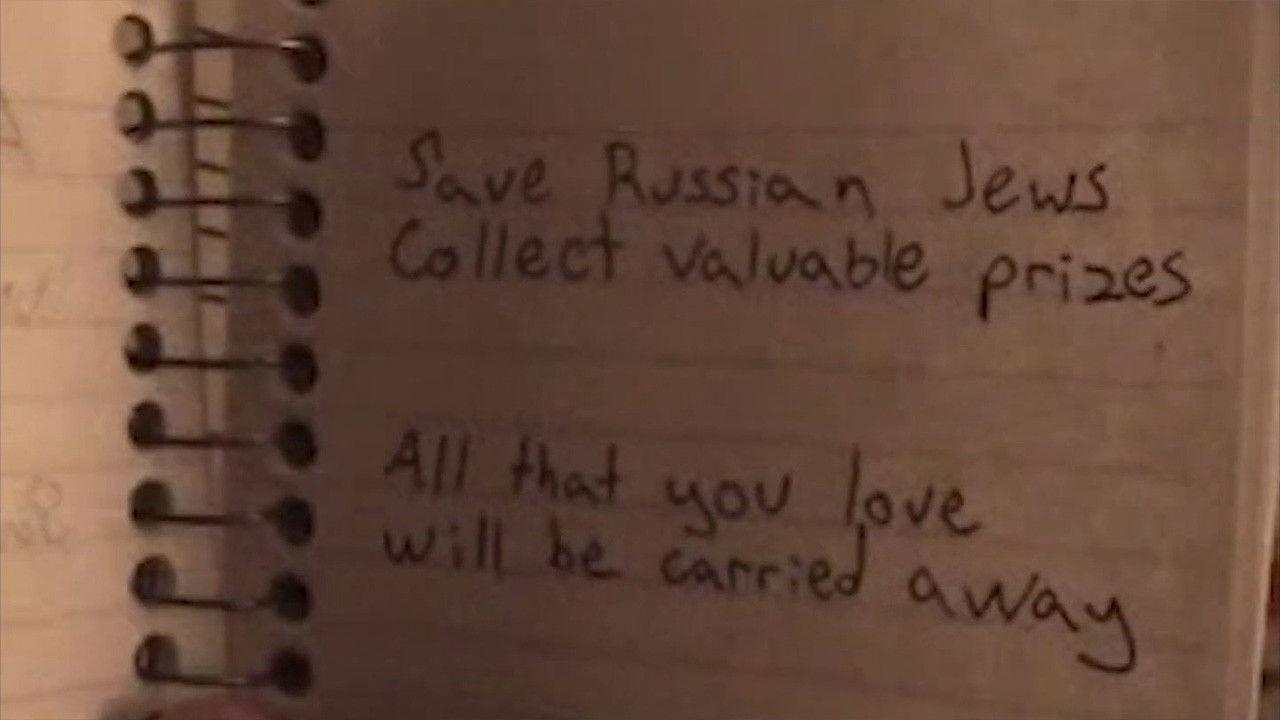 Save Russian Jews
Collect valuable prizes
All that you love
will be carried away